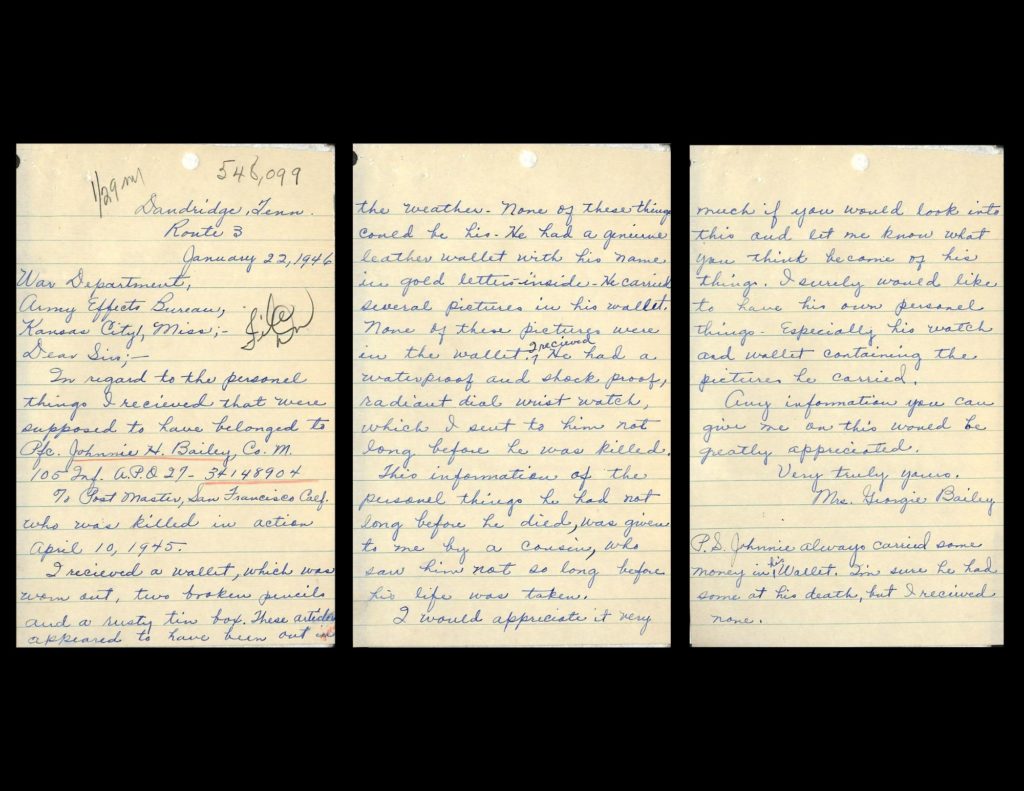 1/29
546,099
Dandridge, Tenn.
Route 3
January 22, 1946
War Department,
Army Effects Bureau,
Kansas City, Miss;-
File
Dear Sir;-
In regard to the personel
things I recieved that were
supposed to have belonged to
Pfc. Johnnie H. Bailey, Co. M.
105 Inf. A.P.O 27- 34148904
To Post Master, San Francisco Calf.
who was killed in action
April 10, 1945.
I recieved a wallet, which was
worn out, two broken pencils
and a rusty tin box. These articles
appeared to have been out in
the weather- None of these things
could be his- He had a geniune
leather wallet with his name
in gold letters-inside- He carried
several pictures in his wallet.
None of these pictures were
in the wallet I recieved. He had a
waterproof and shock proof,
radiant dial wrist watch,
which I sent to him not
long before he was killed.
This information of the
personel things he had not
long before he died, was given
to me by a cousin, who
saw him not so long before
his life was taken.
I would appriciate it very
much if you would look into
this and let me know what
you think became of his
things. I surely would like
to have his own personel
things- Especially his watch
and wallet containing the
pictures he carried.
Any information you can
give me on this would be
greatly appriciated.
Very truly yours.
Mrs. Georgie Bailey
P.S. Johnnie always carried some
money in his Wallet. I'm sure he had
some at his death, but I recieved
none.